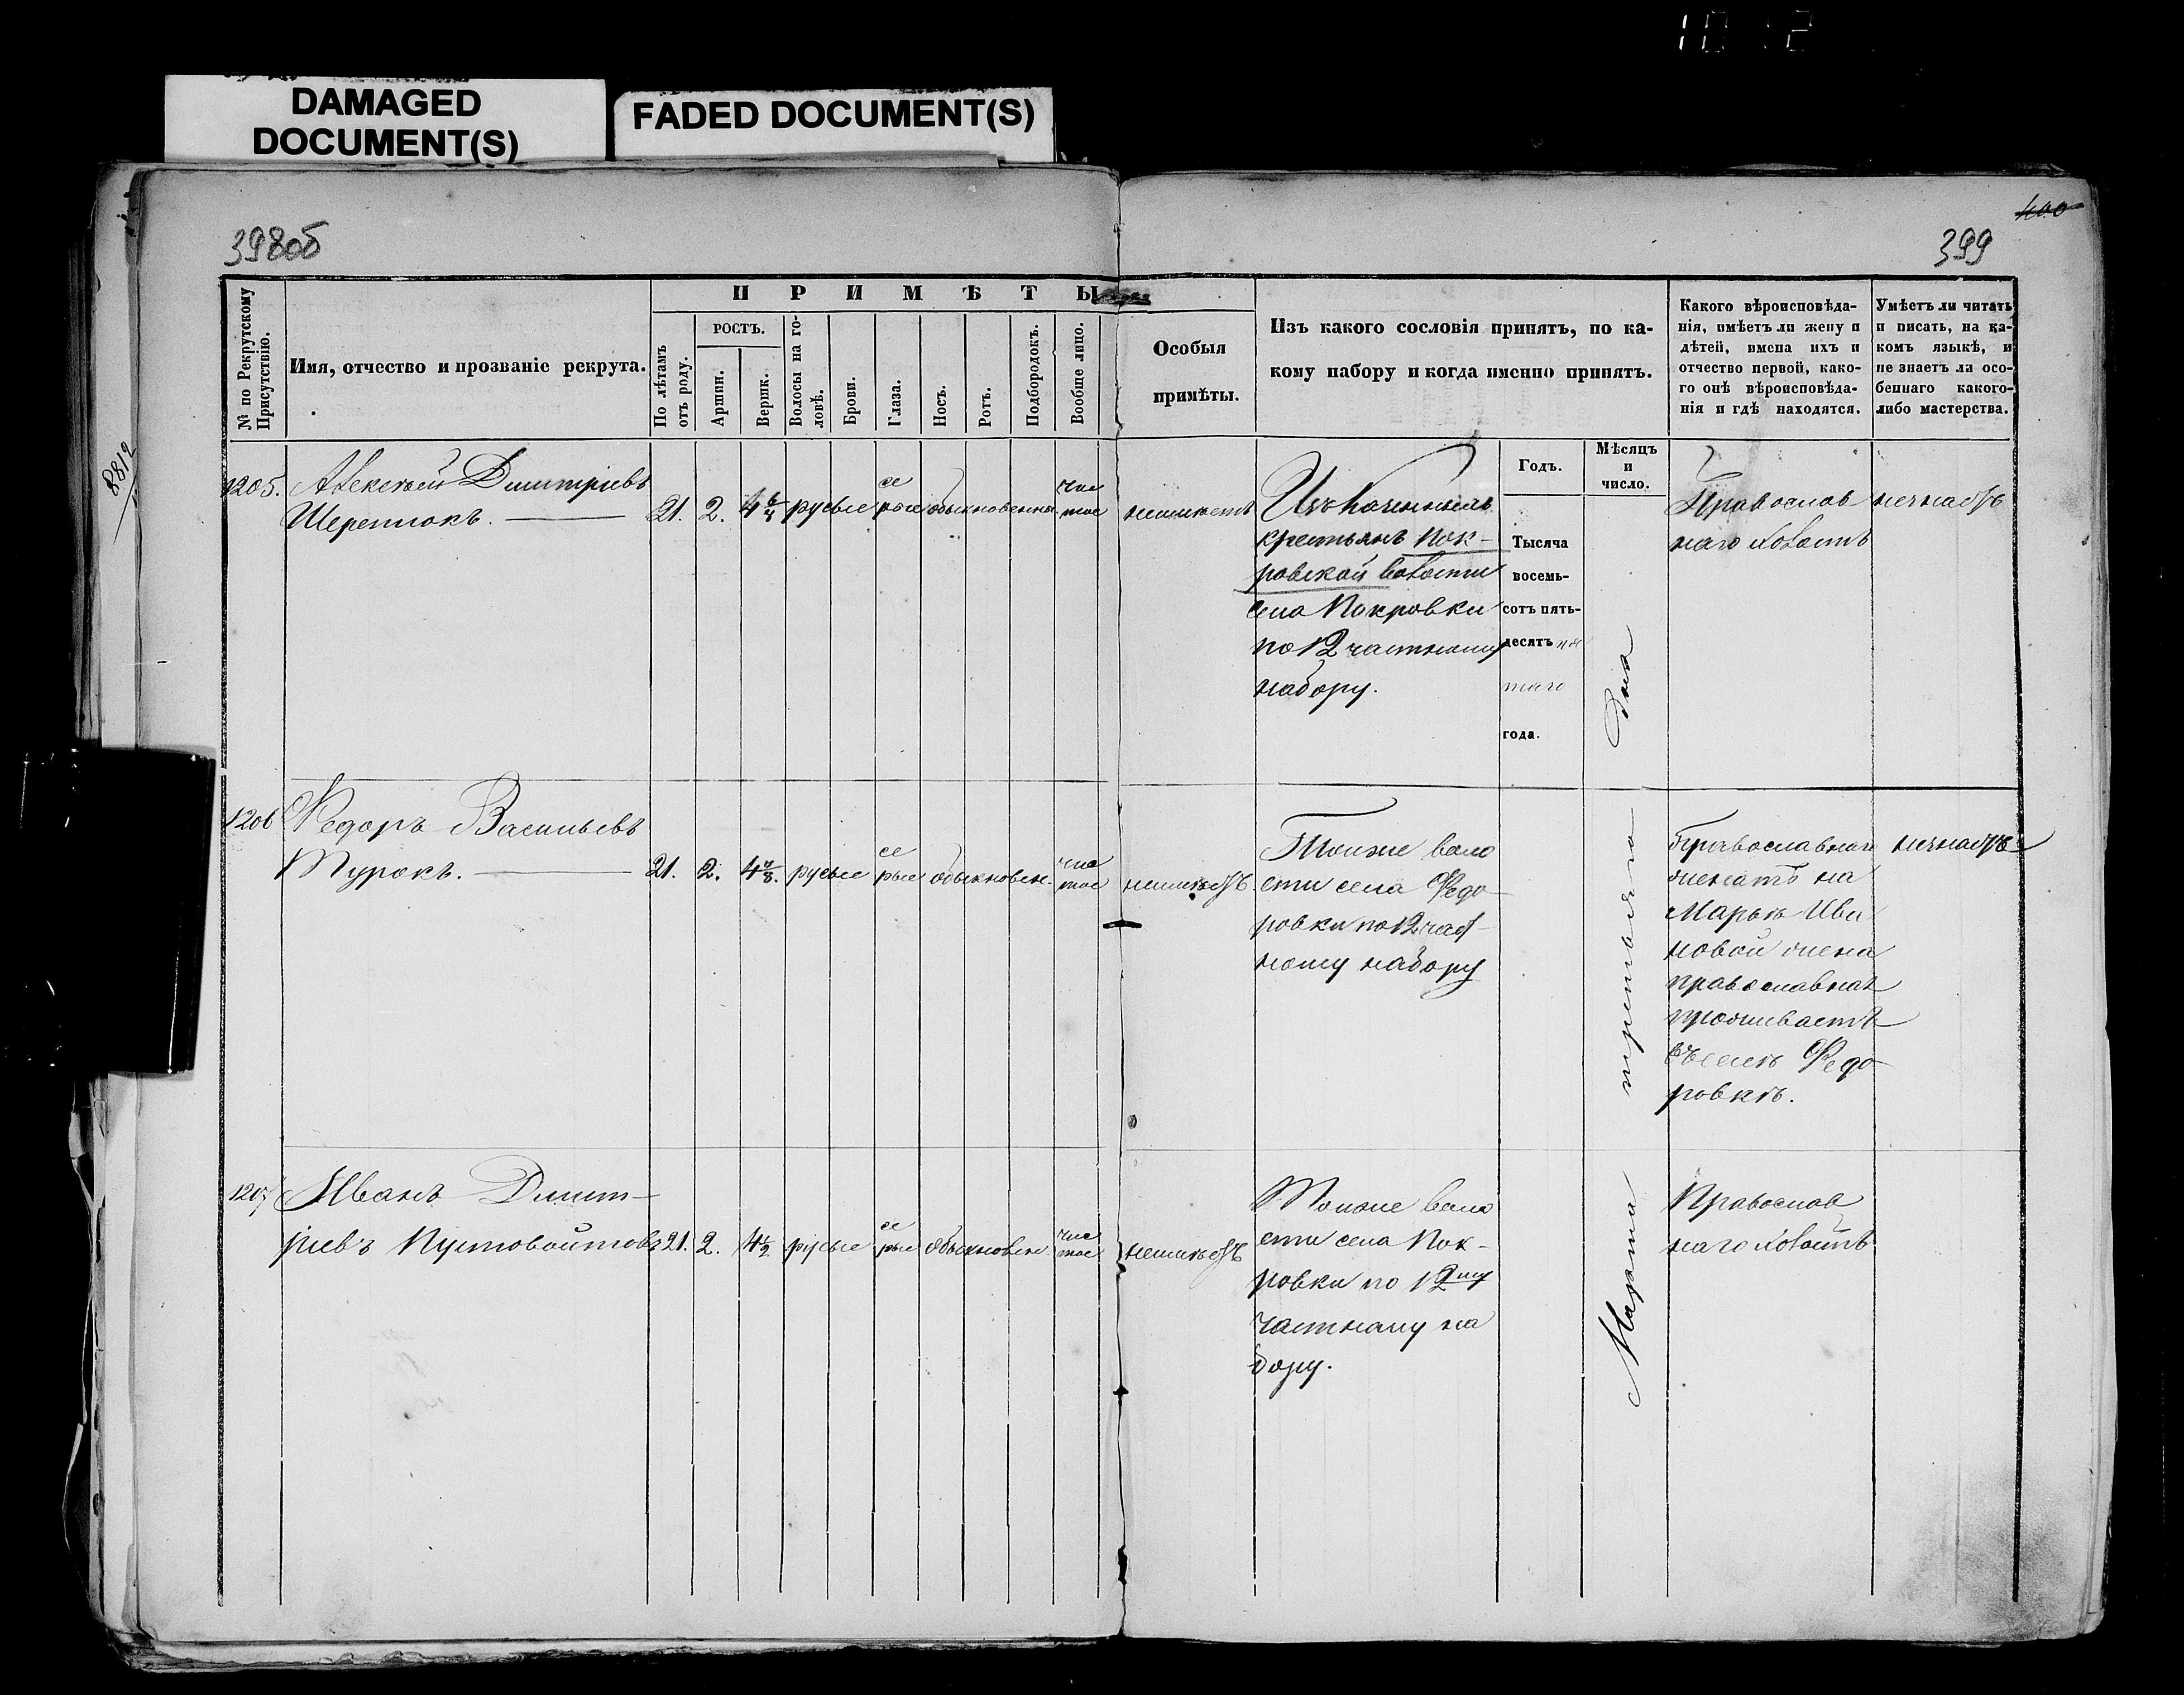 DAMAGED
DOCUMENT(S)
FADED DOCUMENT(S)
398об
400
399
8812
№ по Рекрутскому
Присутствію.
Имя, отчество и прозваніе рекрута.
ПРИМѢТЫ
По лѣтамъ
отъ роду.
РОСТЪ.
Аршин.
Вершк.
Волосы на го-
ловѣ.
Брови.
Глаза.
Носъ.
Ротъ.
Подбородокъ.
Вообще лицо.
Особыя
примѣты.
Изъ какого сословія принятъ, по ка-
кому набору и когда именно принятъ.
Какого вѣроисповѣда-
нія, имѣетъ ли жену и
дѣтей, имена ихъ и
отчество первой, како-
го онѣ вѣроисповѣда-
нія и гдѣ находятся.
Умѣетъ ли читать
и писать, на ка-
комъ языкѣ, и
не знаетъ ли осо-
беннаго какого-
либо мастерства.
Годъ.
Мѣсяцъ
и
число.
1205.
Алексѣй Дмитріевъ
Шереметокъ.
21. 2. 4 6/8 русые
се
рые
обыкновенны
чис
тое
неимѣетъ
Изъ казенныхъ
крестьянъ Пок-
ровской волости
села Покровки
по 12 частному
набору.
Тысяча
восемь-
сотъ пять-
десятъ пя
таго
года.
Дня
третьяго
Марта
Православ
наго холостъ
незнаетъ
1206
Федоръ Васильевъ
Турокъ.
21. 2. 4 7/8. русые
се
рые
обыкновен.
чис
тое
неимѣетъ
Тойже воло
сти села Федо
ровки по 12 част
ному набору
Православнаго
женатъ на
Марьѣ Ива
новой жена
православная
проживаетъ
въ селѣ Федо
ровкѣ.
незнаетъ
1207
Иванъ Дмит-
ріевъ Пустовойтовъ
21. 2. 4 1/2 русые
се
рые
обыкновен
чис
тое
неимѣетъ
Тойже воло
сти села Пок-
ровки по 12му
частному на
бору.
Православ
наго холостъ